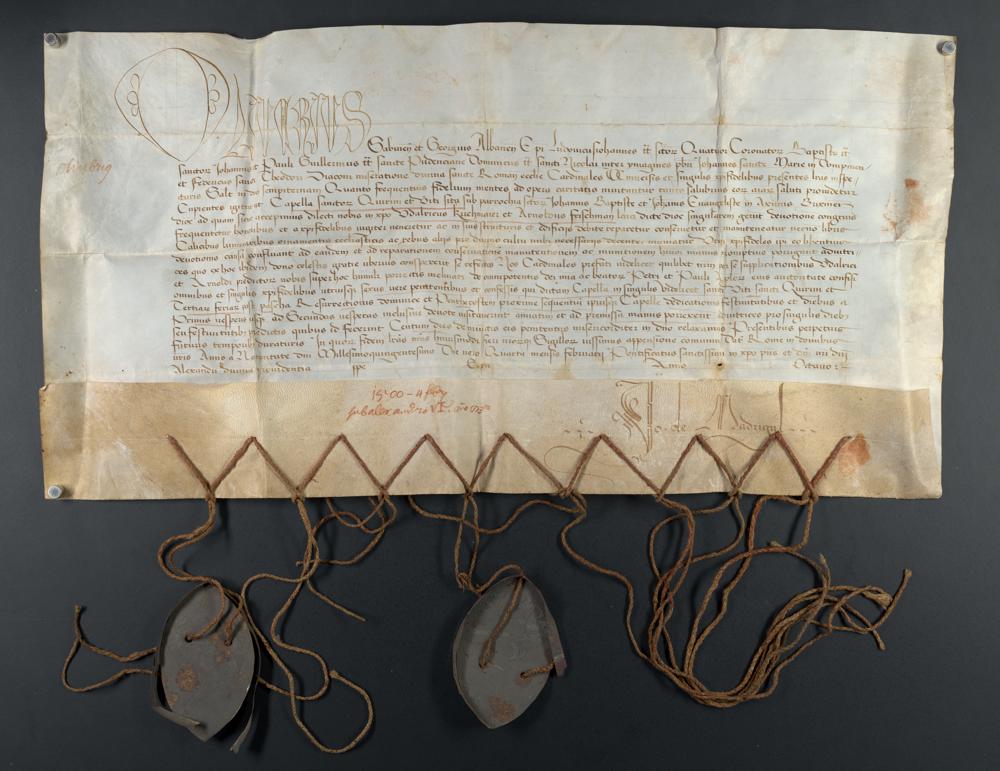 OLIVERIUS
Sabineñ et Georgius Albaneñ Epi Ludovicus Johannes tt sctor Quatuor Coronator Baptista tt
sanctor Johannis et Pauli Guillermus tt sancte Pudenciane Dominicus tt sancti Nicolai inter ymagines pbri Johannes sancte Marie in
et Federicus sancti Theodori Diaconi miseratione divina sancte Roman ecclie Cardinales Universis et singulis xpifidelibus presentes lras inspe
cturis Salt in dno sempiternam Quanto frequentius fidelium mentes ad opera caritatis inducuntur tanto salubrius eor aiar saluti providetur
Cupientes igitur ut Capella sanctor Quirini et Viti sita sub parrochia sctor Johannis Baptiste et Johannis Evangeliste in
dioc ad quam sicut accepimus dilecti nobis in xpo Udalricus et Arnoldus laici dicte dioc singularem gerunt devotionem congruis
frequentetur honoribus et a xpifidelibus iugiter veneretur ac in suis structuris et edificiis debite reparetur conservetur et manuteneatur necnon libris
Calicibus luminaribus ornamentis ecclesiasticis ac rebus aliis pro divino cultu inibi necessariis decenter muniatur Utq xpifideles ipi eo libentius
devotionis causa confluant ad eandem et ad reparationem conservationem manutentionem ac munitionem huiusmodi manus promptius porrigant adiutri
ces quo ex hoc ibidem dono celestis gratie uberius conspexerint se refectos Nos Cardinales prefati videlicet quilibet nrm per se supplicationibus Udalrici
et Arnoldi predictor nobis super hoc humilr porrectis inclinati de omnipotentis dei mia ac beator Petri et Pauli Aplor eius auctoritate confisi
omnibus et singulis xpifidelibus utriusq sexus vere penitentibus et confessis qui dictam Capellam in singulis videlicet sancti Viti sancti Quirini et
Tertia feria post pascha Resurrectionis dominice et Penthecosten proxime sequentium ipsiusq Capelle dedicationis festivitatibus et diebus a
Primis vesperis usq ad Secundas vesperas inclusive devote visitaverint annuatim et ad premissa manus porrexerint adiutrices pro singulis dieb
seu festivitatib predictis quibus id fecerint Centum dies de iniunctis eis penitentiis misericorditer in dno relaxamus Presentibus perpetuis
futuris temporib duraturis In quor fidem lras nras huiusmodi fieri nrorq Sigillor iussimus appensione communiri Dat Rome in domibus
nris Anno a Nativitate dni Millesimoquingentesimo Die vero Quarta mensis februarii Pontificatus sanctissimi in xpo pris et dni nri dni
Alexandri divina providentia ppe Sexti Anno Octavo
1500 - 4 feb
sub alexandro VI.
Jo. de Madrigal